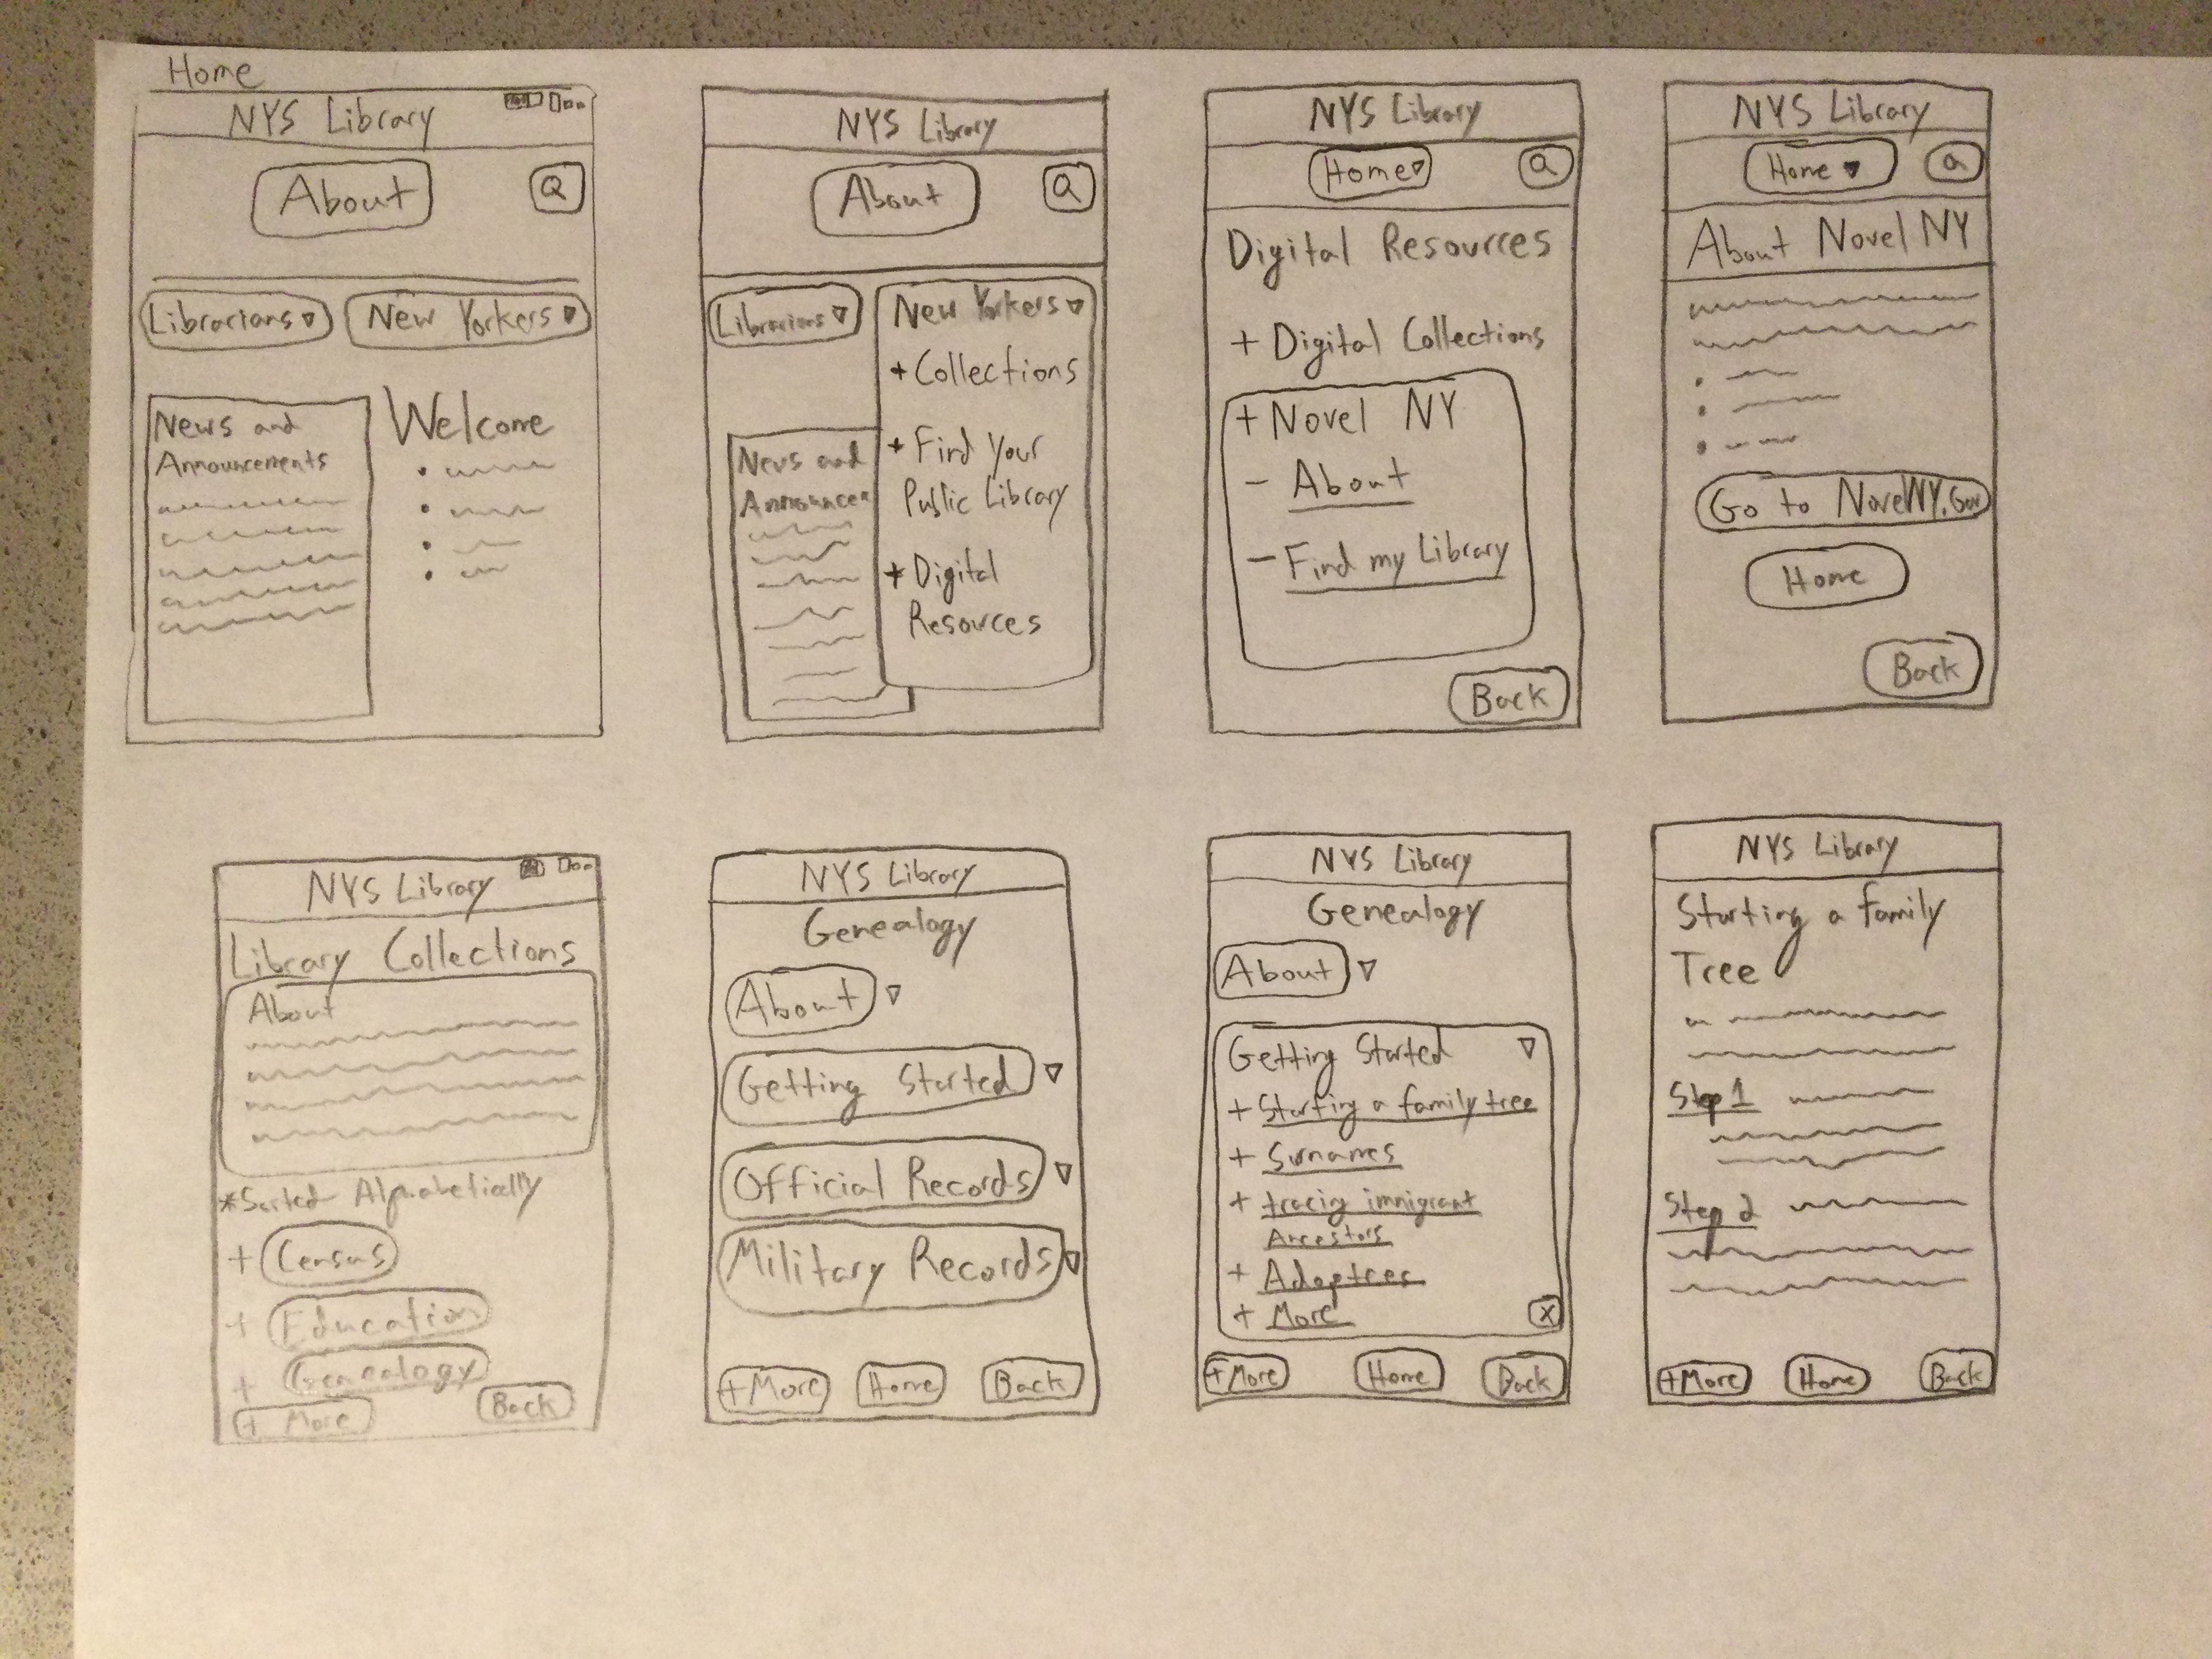 Home
NYS Library
About
Q
Librarians
New Yorkers
News and
Announcements
Welcome
NYS Library
About
Q
Librarians
New Yorkers
+ Collections
+ Find Your
Public Library
+ Digital
Resources
News and
Announcem
NYS Library
Home
Q
Digital Resources
+ Digital Collections
+ Novel NY
- About
- Find my Library
Back
NYS Library
Home
Q
About Novel NY
Go to NovelNY.Gov
Home
Back
NYS Library
Library Collections
About
*Sorted Alphabetically
+ Census
+ Education
+ Genealogy
+ More
Back
NYS Library
Genealogy
About
Getting Started
Official Records
Military Records
+More
Home
Back
NYS Library
Genealogy
About
Getting Started
+ Starting a family tree
+ Surnames
+ tracing immigrant
Ancestors
+ Adoptees
+ More
X
+More
Home
Back
NYS Library
Starting a family
Tree
Step 1
Step 2
+More
Home
Back